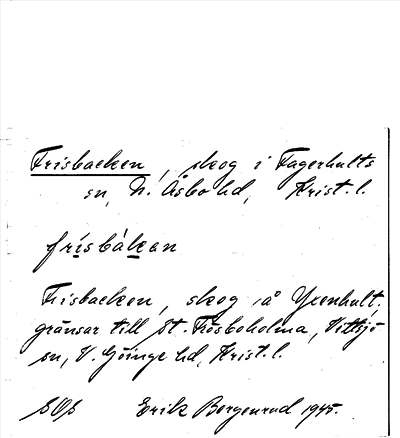 Frisbacken, skog i Fagerhults
sn, N. Åsbo hd, Krist. l.
frisbàkan
Frisbacken, skog å Yxenhult,
gränsar till St. Frösboholma, Vittsjö
sn, V. Göinge hd, Krist. l.
SOS Erik Bergenrud 1945.